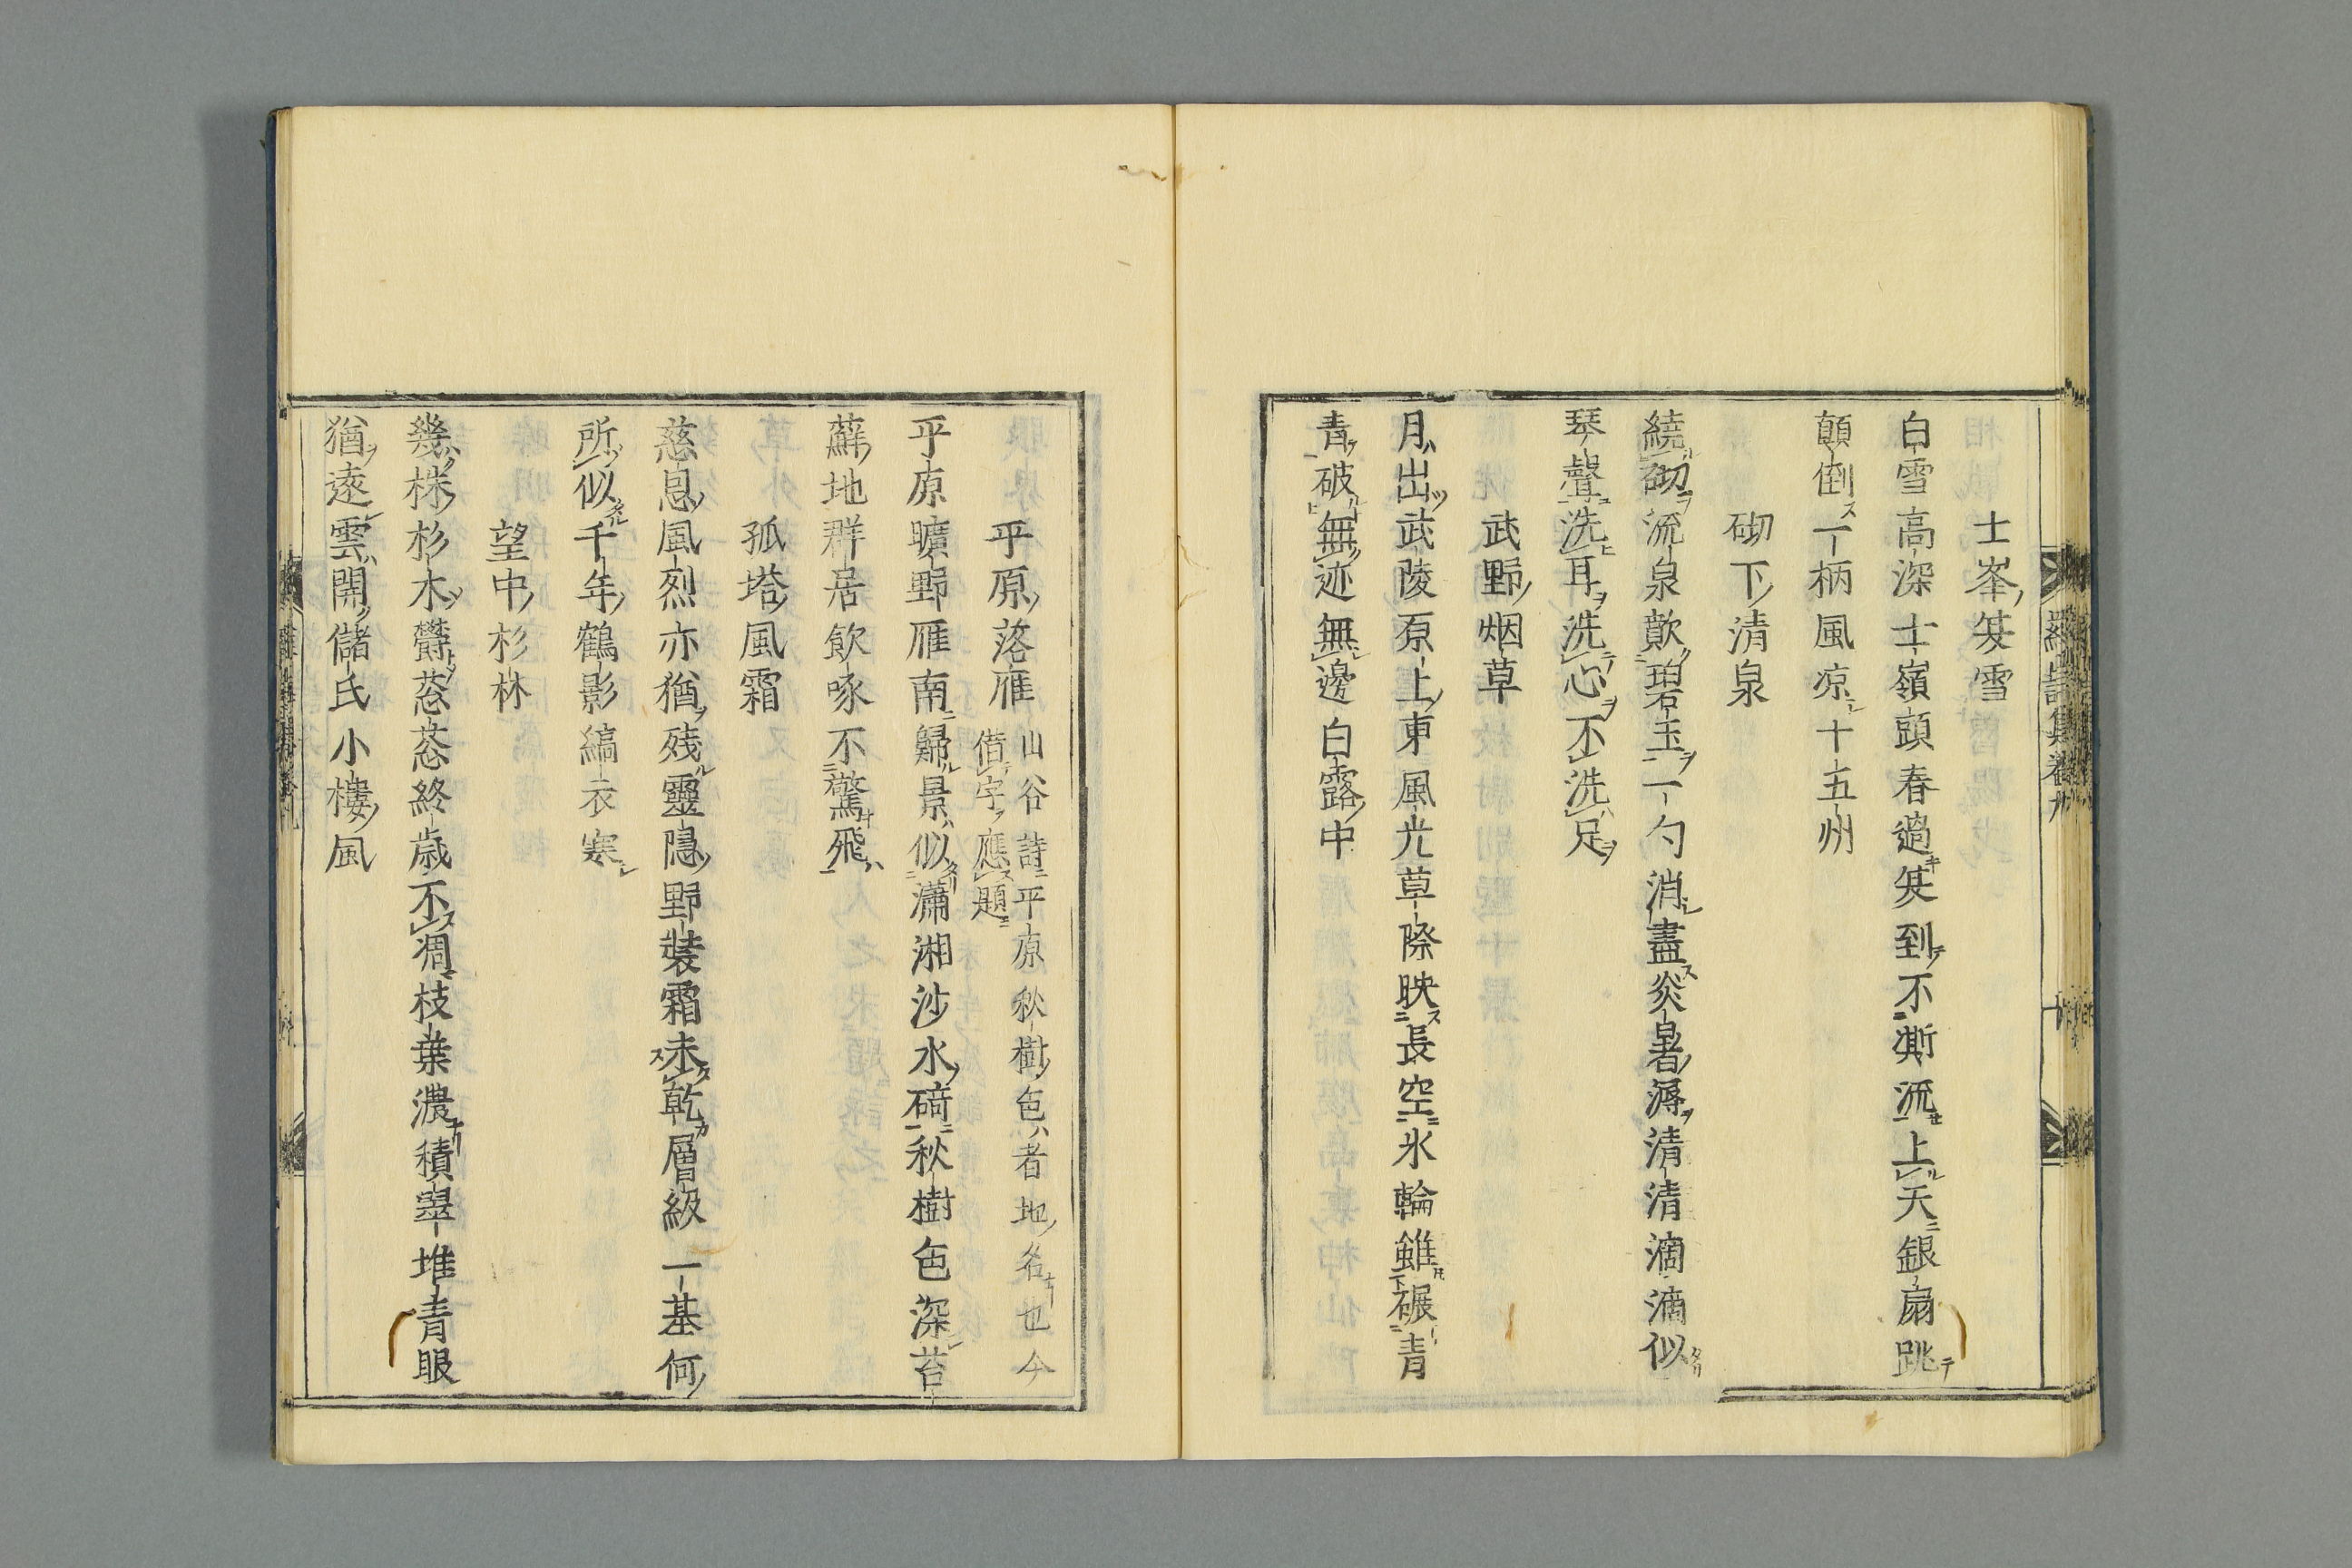 士峯笑雪
白雪高深士嶺頭春過笑到不澌流上天銀扇跳
顛倒一柄風凉十五州
砌下清泉
繞砌流泉歕碧玉一勺消盡炎暑溽清清滴滴似
琴聲洗耳洗心不洗足
武野烟草
月出武陵原上東風光草際映長空氷輪雖碾青
青破無迹無邊白露中
平原落雁
山谷詩平原秋樹色者地名也今
借字應題
平原曠野雁南歸景似瀟湘沙水碕秋樹色深苔
蘚地群居飲啄不驚飛
孤塔風霜
慈息風烈亦猶残靈隠野裝霜未乾層級一基何
所似千年鶴影縞衣寒
望中杉林
幾株杉木欝葱葱終歳不凋枝葉濃積翠堆青眼
猶遠雲開儲氏小樓風